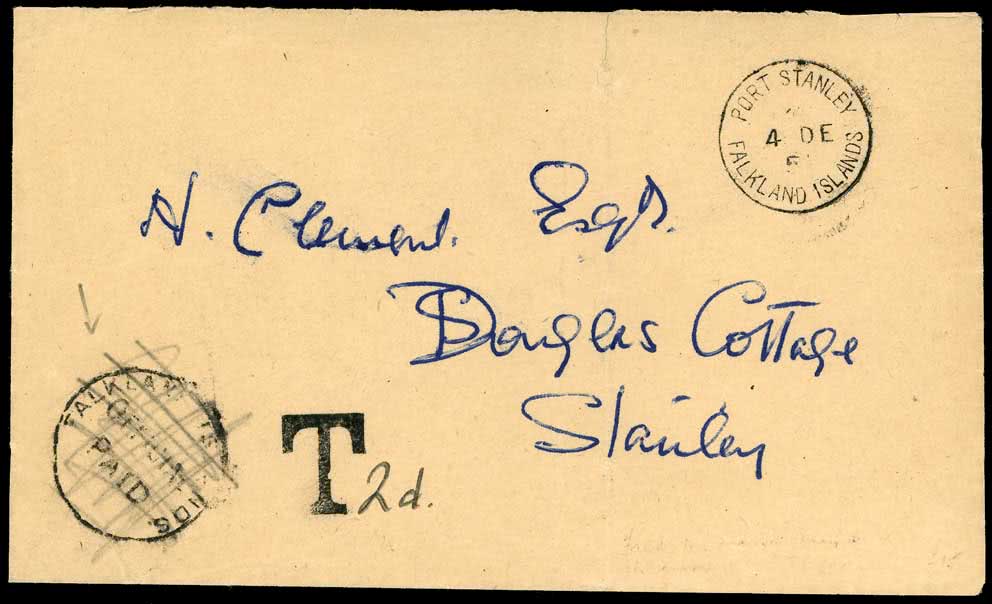 PORT STANLEY
4 DE
5
FALKLAND ISLANDS
H. Clement. Esqr.
Douglas Cottage
Stanley
FALKLAND ISLANDS
OFFICIAL
PAID
T 2d.